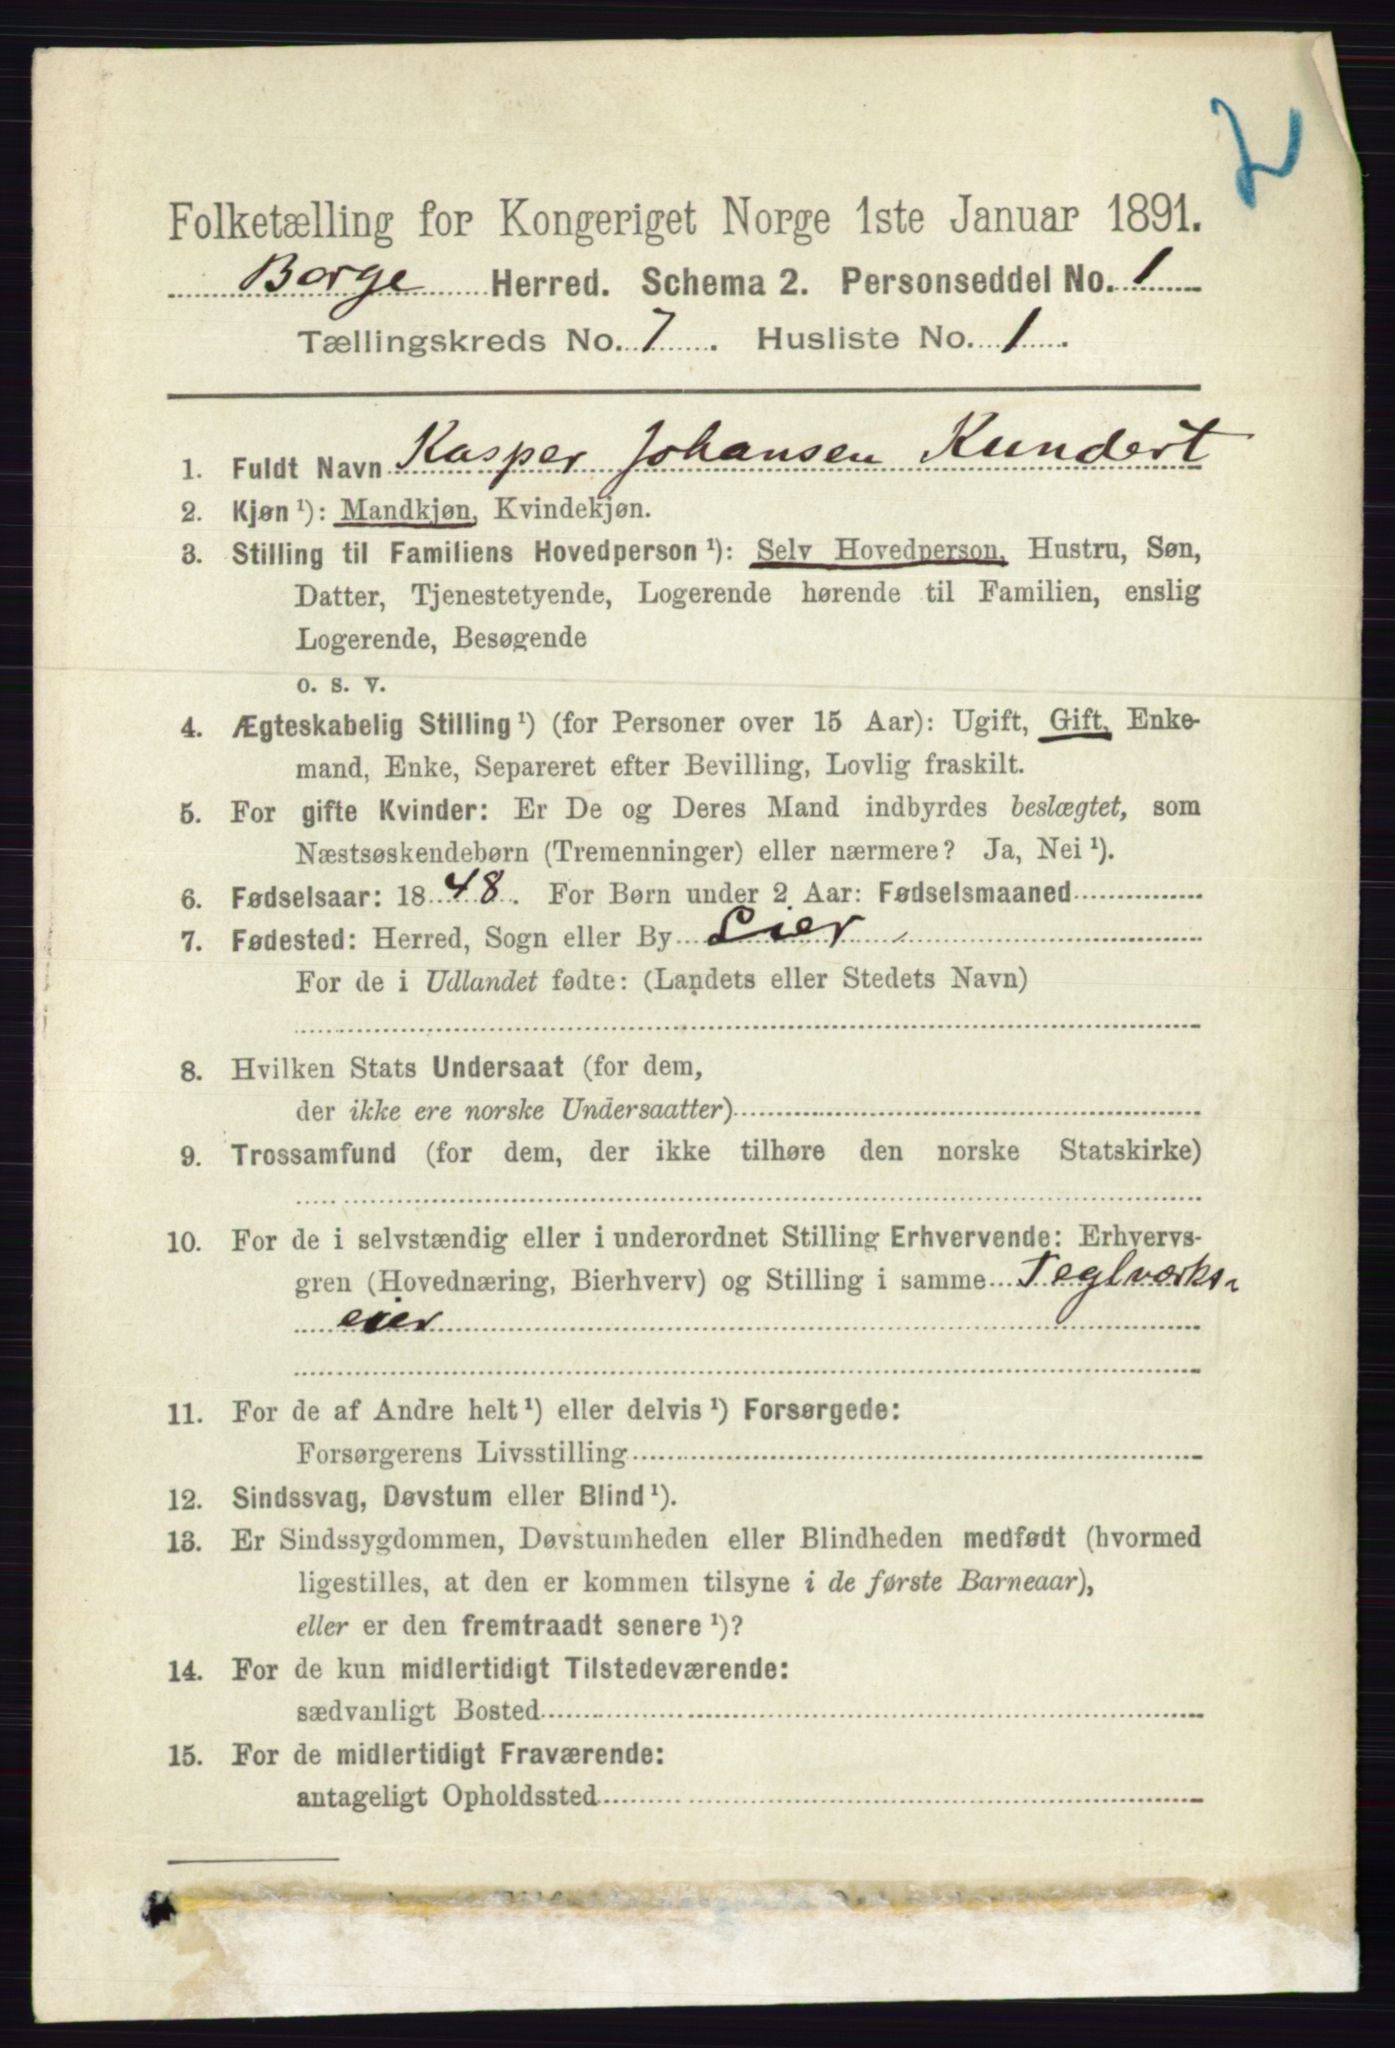 Folketælling for Kongeriget Norge 1ste Januar 1891.
Borge Herred. Schema 2. Personseddel No. 1
Tællingskreds No. 7. Husliste No. 1.
1. Fuldt Navn Kasper Johansen Kundert
2. Kjøn ¹): Mandkjøn, Kvindekjøn.
3. Stilling til Familiens Hovedperson ¹): Selv Hovedperson, Hustru, Søn,
Datter, Tjenestetyende, Logerende hørende til Familien, enslig
Logerende, Besøgende
o. s. v.
4. Ægteskabelig Stilling ¹) (for Personer over 15 Aar): Ugift, Gift, Enke-
mand, Enke, Separeret efter Bevilling, Lovlig fraskilt.
5. For gifte Kvinder: Er De og Deres Mand indbyrdes beslægtet, som
Næstsøskendebørn (Tremenninger) eller nærmere? Ja, Nei ¹).
6. Fødselsaar: 1848. For Børn under 2 Aar: Fødselsmaaned
7. Fødested: Herred, Sogn eller By Lier
For de i Udlandet fødte: (Landets eller Stedets Navn)
8. Hvilken Stats Undersaat (for dem,
der ikke ere norske Undersaatter)
9. Trossamfund (for dem, der ikke tilhøre den norske Statskirke)
10. For de i selvstændig eller i underordnet Stilling Erhvervende: Erhvervs-
gren (Hovednæring, Bierhverv) og Stilling i samme Teglværks-
eier
11. For de af Andre helt ¹) eller delvis ¹) Forsørgede:
Forsørgerens Livsstilling
12. Sindssvag, Døvstum eller Blind ¹).
13. Er Sindssygdommen, Døvstumheden eller Blindheden medfødt (hvormed
ligestilles, at den er kommen tilsyne i de første Barneaar),
eller er den fremtraadt senere ¹)?
14. For de kun midlertidigt Tilstedeværende:
sædvanligt Bosted
15. For de midlertidigt Fraværende:
antageligt Opholdssted